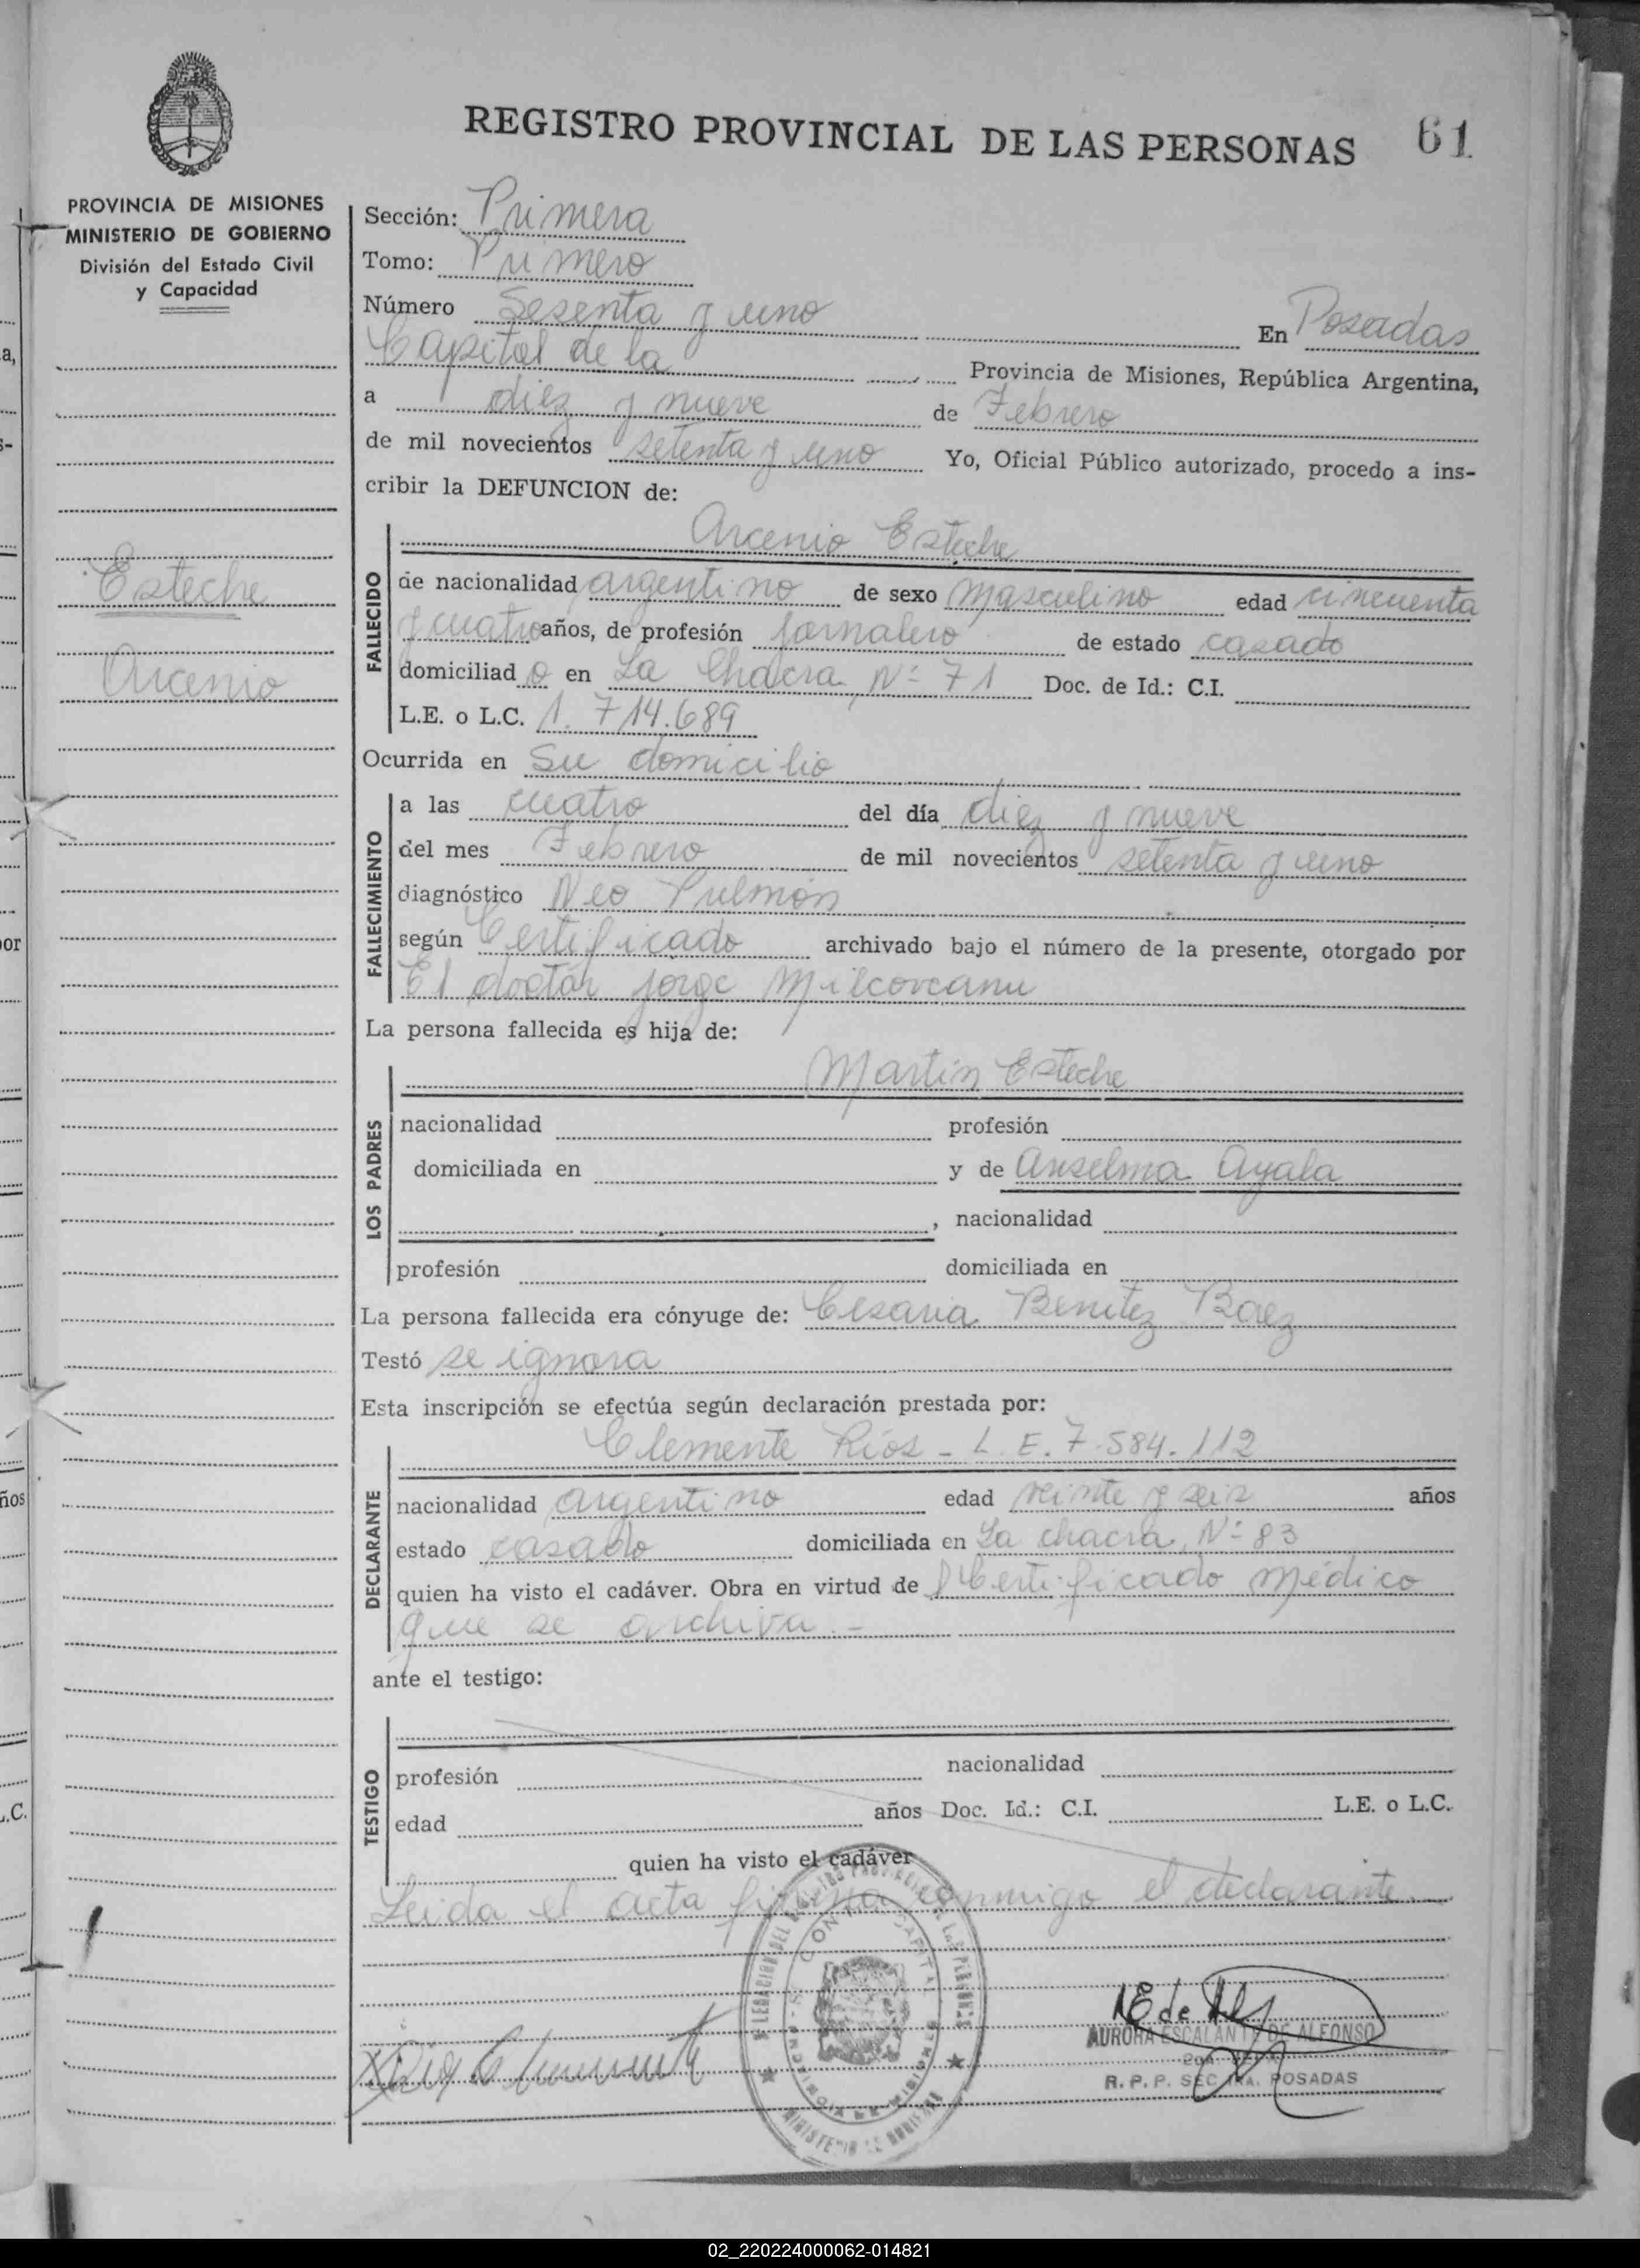 REGISTRO PROVINCIAL DE LAS PERSONAS 61
PROVINCIA DE MISIONES
MINISTERIO DE GOBIERNO
División del Estado Civil
y Capacidad
Esteche
Arcenio
Sección: Primera
Tomo: Primero
Número Sesenta y uno En Posadas
Capital de la Provincia de Misiones, República Argentina,
a diez y nueve de Febrero
de mil novecientos setenta y uno Yo, Oficial Público autorizado, procedo a ins-
cribir la DEFUNCION de:
Arcenio Esteche
FALLECIDO
de nacionalidad argentino de sexo Masculino edad cincuenta
y cuatro años, de profesión Jornalero de estado casado
domiciliad o en La Chacra Nº 71 Doc. de Id.: C.I.
L.E. o L.C. 1.714.689
Ocurrida en Su domicilio
FALLECIMIENTO
a las cuatro del día diez y nueve
del mes Febrero de mil novecientos setenta y uno
diagnóstico Neo Pulmón
según Certificado archivado bajo el número de la presente, otorgado por
El doctor Jorge Milcovcanu
La persona fallecida es hija de:
LOS PADRES
Martin Esteche
nacionalidad profesión
domiciliada en y de Anselma Ayala
, nacionalidad
profesión domiciliada en
La persona fallecida era cónyuge de: Cesaria Benitez Baez
Testó se ignora
Esta inscripción se efectúa según declaración prestada por:
DECLARANTE
Clemente Ríos - L.E. 7.584.112
nacionalidad argentino edad veinte y seis años
estado casado domiciliada en La chacra, Nº 83
quien ha visto el cadáver. Obra en virtud de Certificado Médico
que se archiva.-
ante el testigo:
TESTIGO
profesión nacionalidad
edad años Doc. Id.: C.I. L.E. o L.C.
quien ha visto el cadáver
Leida el acta firma conmigo el declarante
AURORA ESCALANTE DE ALFONSO
R. P. P. SEC 1RA. POSADAS
a,
s-
por
ños
.C.
02_220224000062-014821